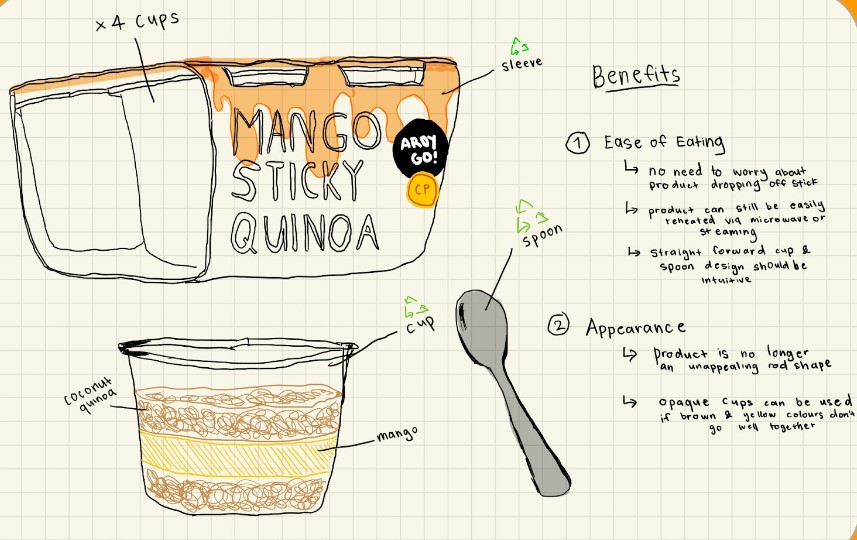 x4 cups
sleeve
MANGO
STICKY
QUINOA
AROY
GO!
CP
spoon
cup
coconut
quinoa
mango
Benefits
① Ease of Eating
↳ no need to worry about
product dropping off stick
↳ product can still be easily
reheated via microwave or
steaming
↳ straight forward cup &
spoon design should be
intuitive
② Appearance
↳ product is no longer
an unappealing rod shape
↳ opaque cups can be used
if brown & yellow colours don't
go well together